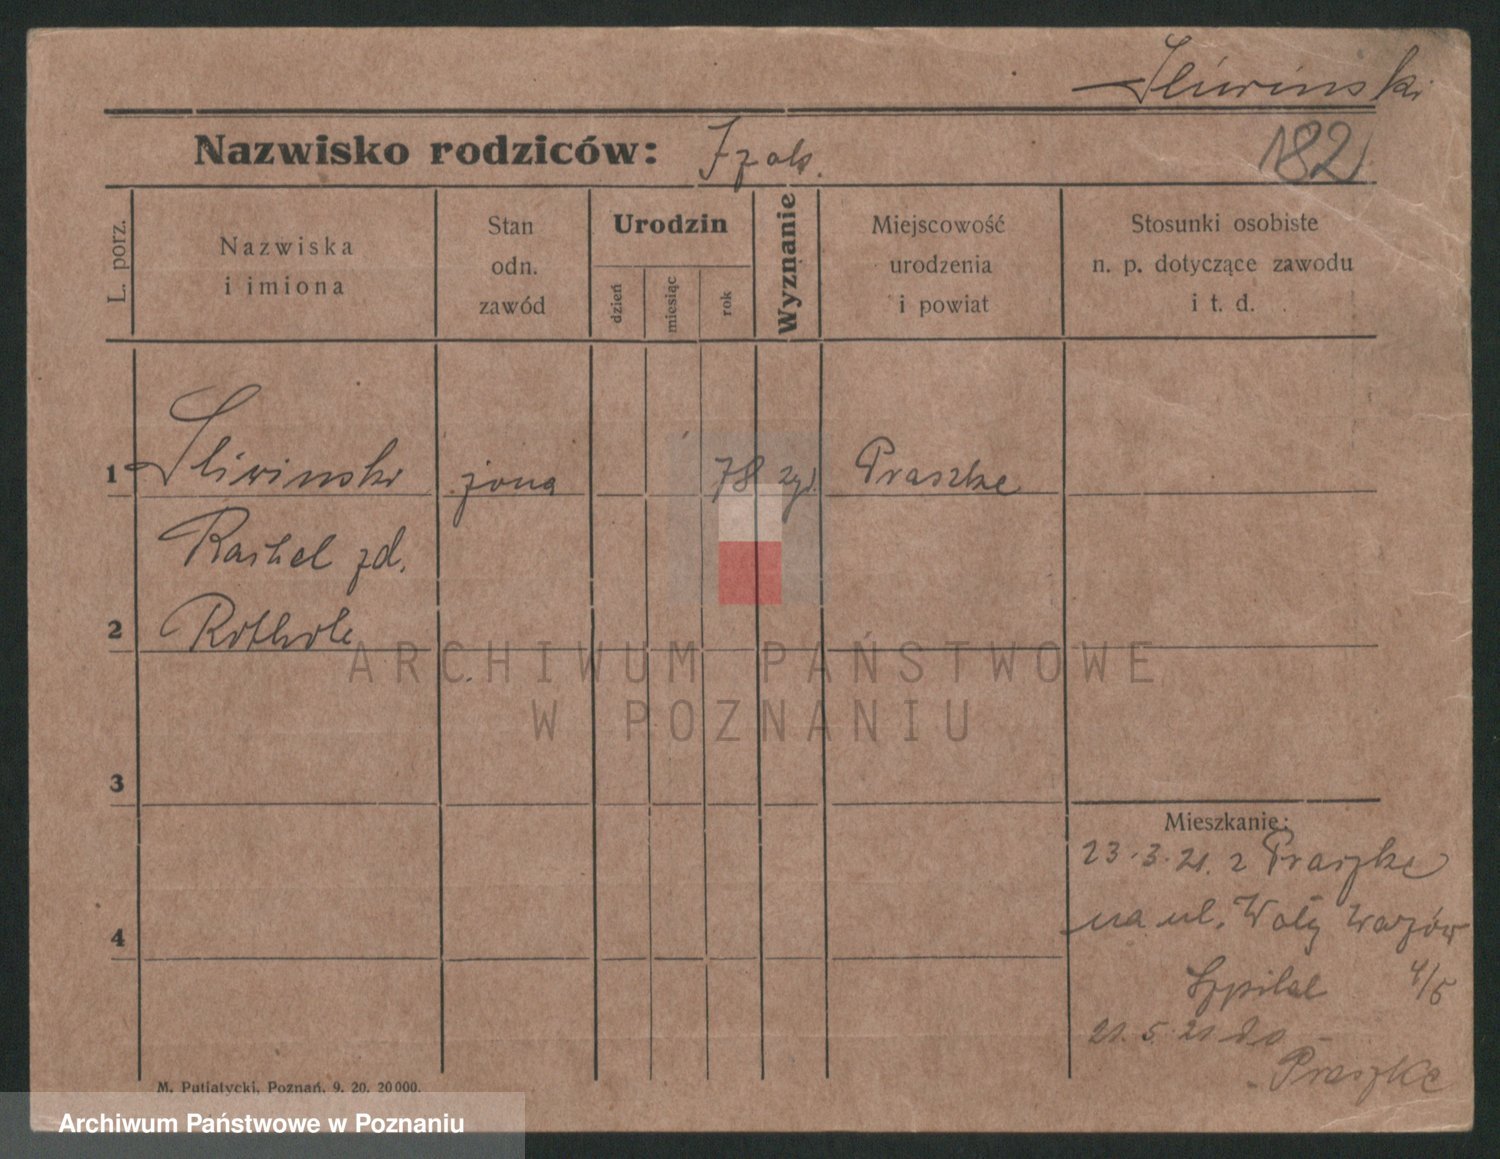 Śliwinski
182
Nazwisko rodziców: Izak.
L. porz.
Nazwiska
i imiona
Stan
odn.
zawód
Urodzin
dzień
miesiąc
rok
Wyznanie
Miejscowość
urodzenia
i powiat
Stosunki osobiste
n. p. dotyczące zawodu
i t. d.
1 Śliwinski żona 78 żyd. Praszke
Rachel zd.
2
3
Mieszkanie:
23.3.21. z Praszke
na ul. Wały
4
Szpital 4/5
21.5.21 do
Praszke
M. Putiatycki, Poznań, 9. 20. 20000.
ARCHIWUM PAŃSTWOWE
W POZNANIU
Archiwum Państwowe w Poznaniu